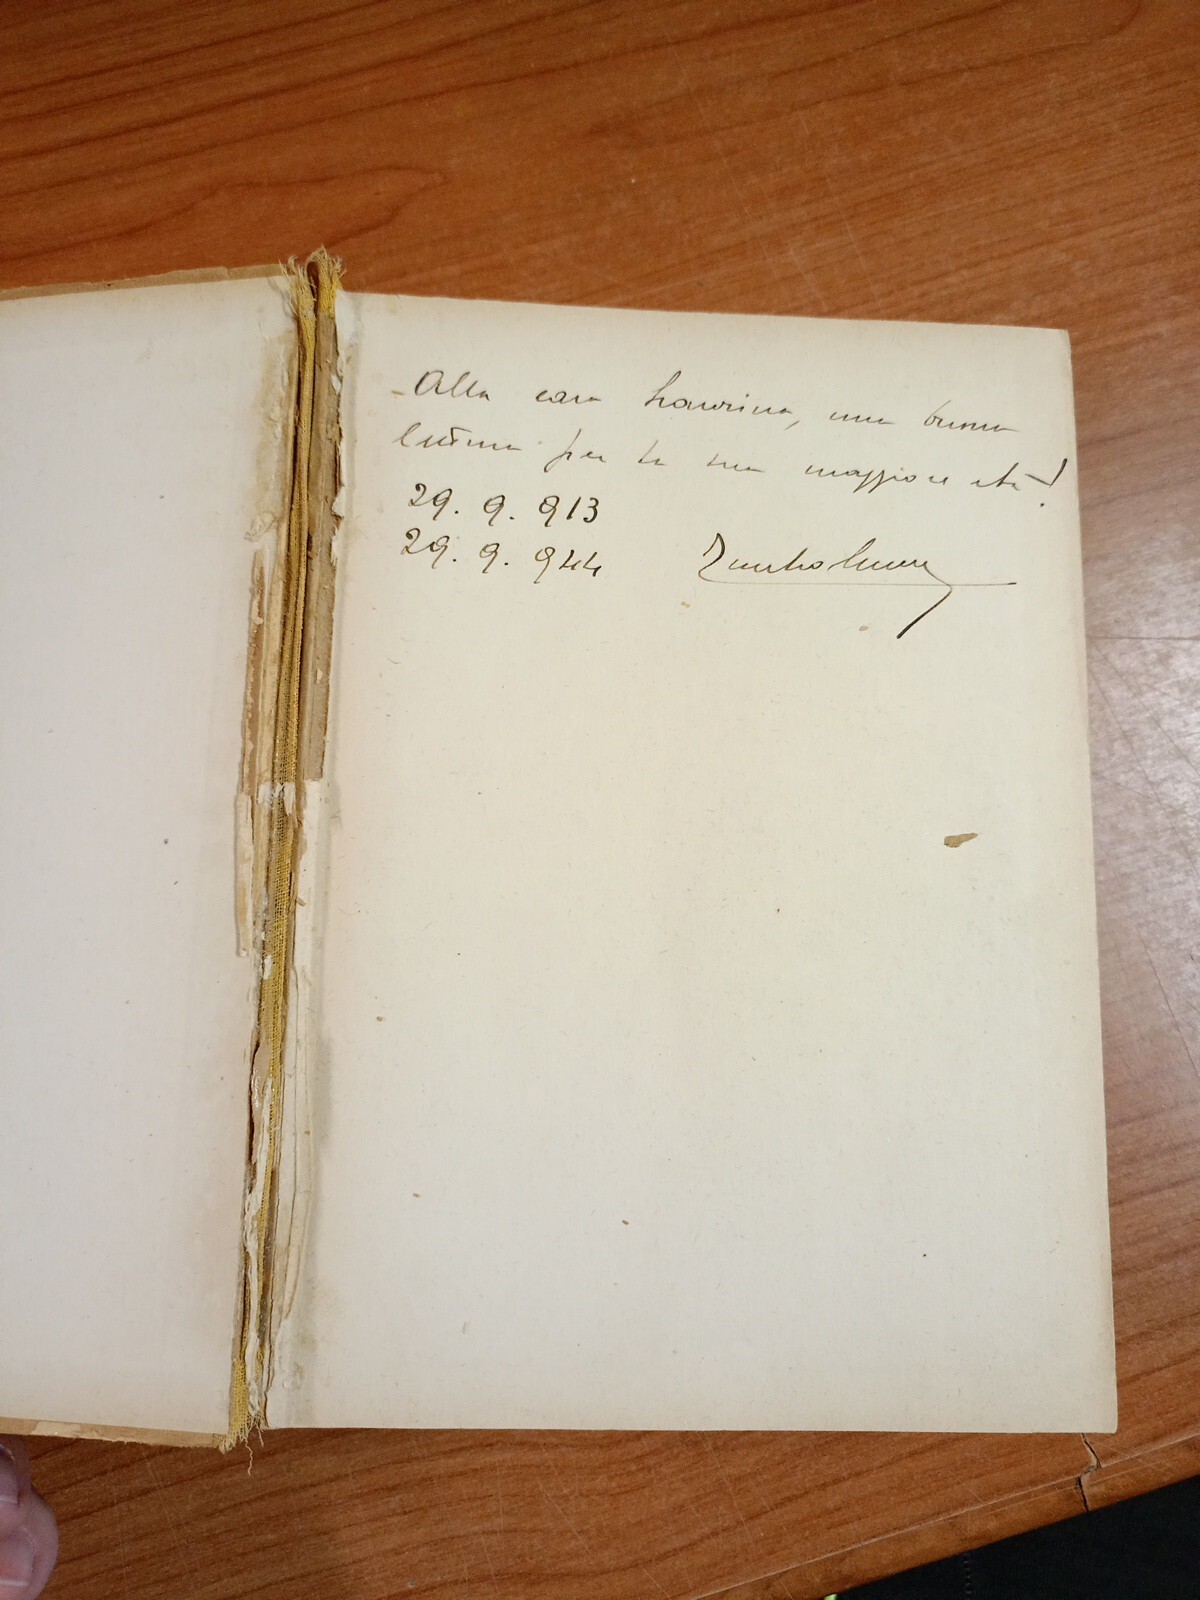 Alla cara Laurina, una buona
lettura per la sua maggiore età!
29. 9. 913
29. 9. 944